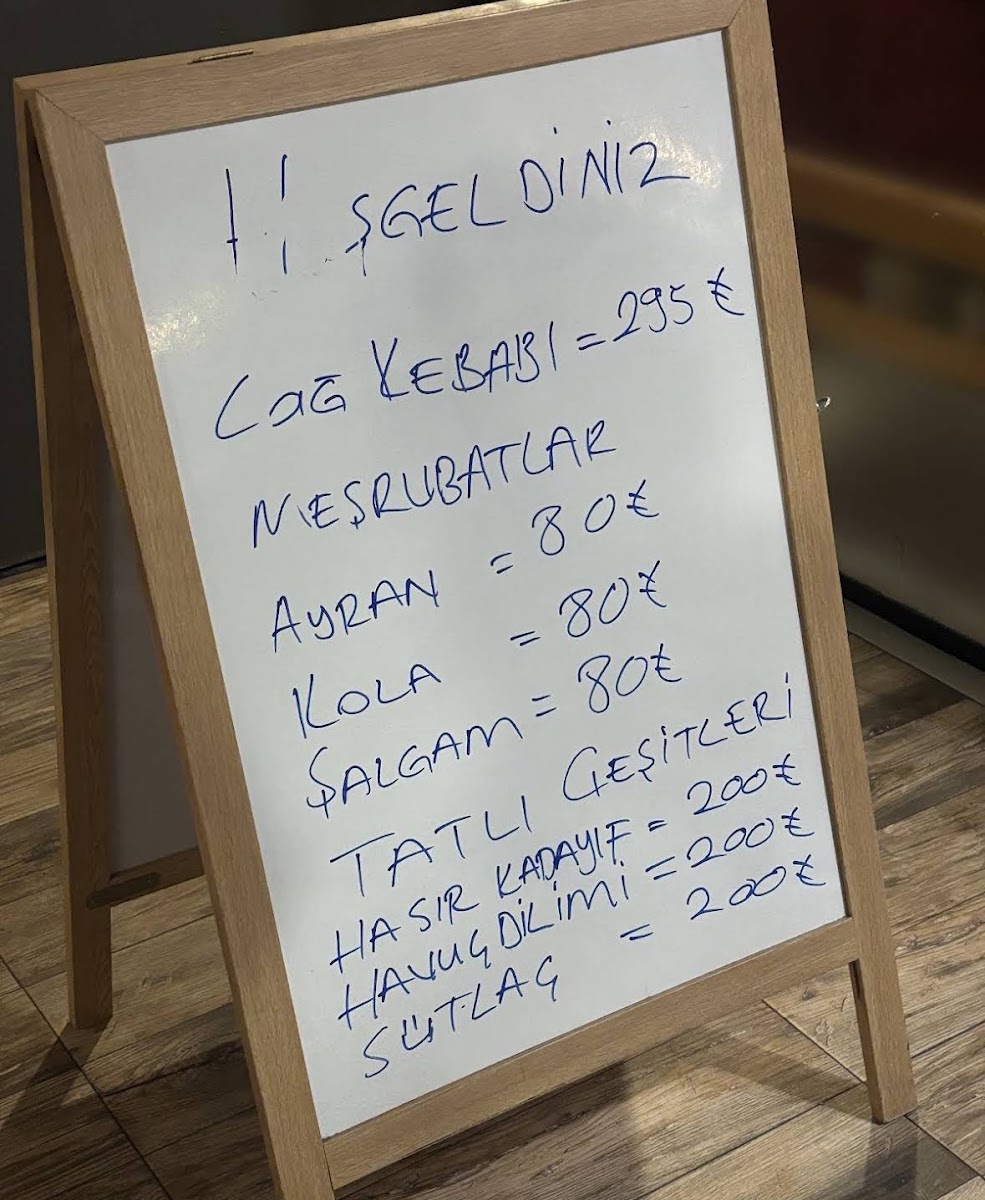 H ŞGELDİNİZ
CAĞ KEBABI = 295 ₺
MEŞRUBATLAR
AYRAN = 80 ₺
KOLA = 80 ₺
ŞALGAM = 80 ₺
TATLI ÇEŞİTLERİ
HASIR KADAYIF = 200 ₺
HAVUÇ DİLİMİ = 200 ₺
SÜTLAÇ = 200 ₺